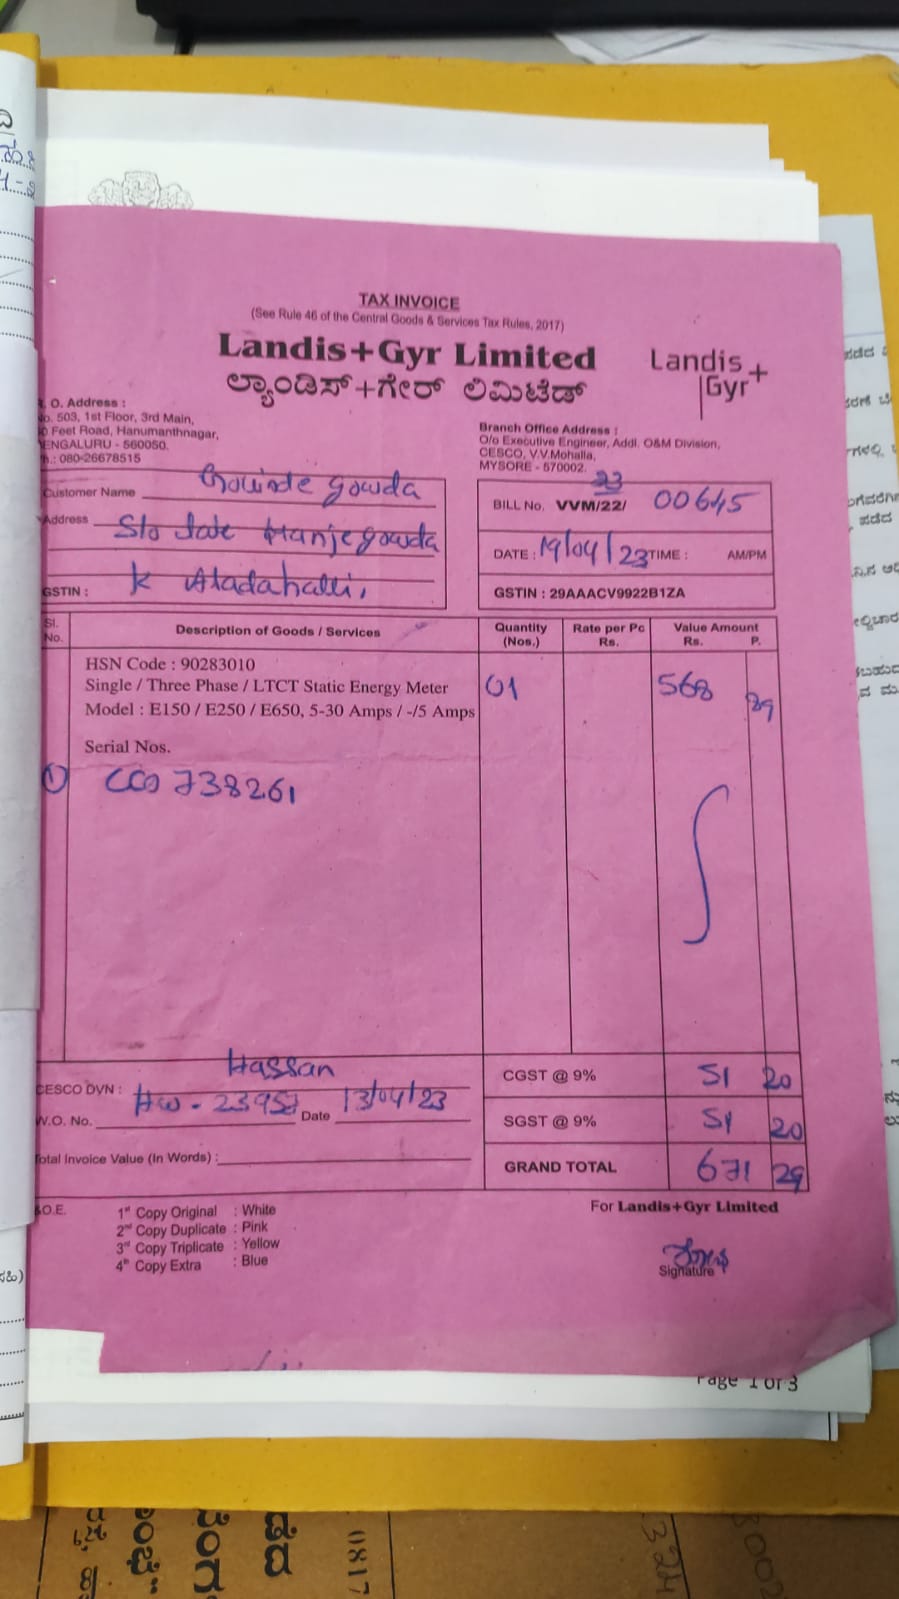 TAX INVOICE
(See Rule 46 of the Central Goods & Services Tax Rules, 2017)
Landis+Gyr Limited
ಲ್ಯಾಂಡಿಸ್+ಗೇರ್ ಲಿಮಿಟೆಡ್
Landis+
Gyr
O. Address :
No. 503, 1st Floor, 3rd Main,
Feet Road, Hanumanthnagar,
ENGALURU - 560050.
h.: 080-26678515
Branch Office Address :
O/o Executive Engineer, Addl. O&M Division,
CESCO, V.V.Mohalla,
MYSORE - 570002.
Customer Name Govinde gowda
Address S/o late Manjegowda
GSTIN : K Aladahalli,
23
BILL No. VVM/22/ 00645
DATE : 19/04/23 TIME : AM/PM
GSTIN : 29AAACV9922B1ZA
Sl. No. Description of Goods / Services Quantity (Nos.) Rate per Pc Rs. Value Amount Rs. P.
HSN Code : 90283010
Single / Three Phase / LTCT Static Energy Meter 01 568 89
Model : E150 / E250 / E650, 5-30 Amps / -/5 Amps
Serial Nos.
① CCO 738261
CESCO DVN : Hassan
W.O. No. Date 13/04/23
Total Invoice Value (In Words) :
CGST @ 9% 51 20
SGST @ 9% 51 20
GRAND TOTAL 671 29
.O.E.
1st Copy Original : White
2nd Copy Duplicate : Pink
3rd Copy Triplicate : Yellow
4th Copy Extra : Blue
For Landis+Gyr Limited
Signature
Page 1 of 3
0817